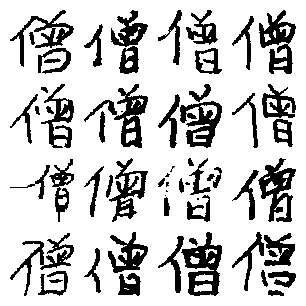 僧僧僧僧
僧僧僧僧
僧僧僧僧
僧僧僧僧